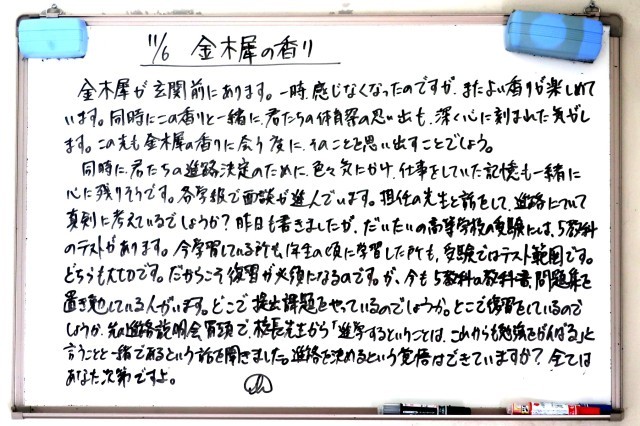 11/6 金木犀の香り
金木犀が玄関前にあります。一時、感じなくなったのですが、またよい香りが楽しめて
います。同時にこの香りと一緒に、君たちの体育祭の思い出も、深く心に刻まれた気がし
ます。この先も金木犀の香りに会う度に、そのことを思い出すことでしょう。
同時に、君たちの進路決定のために、色々気にかけ、仕事をしていた記憶も一緒に
心に残りそうです。各学級で面談が進んでいます。担任の先生と話をして、進路について
真剣に考えているでしょうか?昨日も書きましたが、だいたいの高等学校の受験には、5教科
のテストがあります。今学習している所も、1年生の頃に学習した所も、受験ではテスト範囲です。
どちらも大切です。だからこそ復習が必須になるのです。が、今も5教科の教科書、問題集を
置き勉している人がいます。どこで提出課題をやっているのでしょうか。どこで復習をしているので
しょうか。先の進路説明会冒頭で、校長先生から「進学するということは、これからも勉強をがんばる」と
言うことと一緒であるという話を聞きました。進路を決めるという覚悟はできていますか?全ては
あなた次第ですよ。